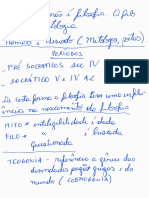 nós é filosofia. O pós
mitologia
Homero e Hesíodo (Mitologia, poetas)
PERÍODOS
- PRÉ SOCRÁTICOS SEC IV
- SOCRÁTICO V e IV AC
De certa forma a filosofia tem uma influ-
ência no nascimento da filosofia
MITO = inteligibilidade é dada
FILO = " é buscada
questionada
TEOGONIA - referência a gênese das
divindades pagãs gregas e do
mundo (COSMOGONIA)